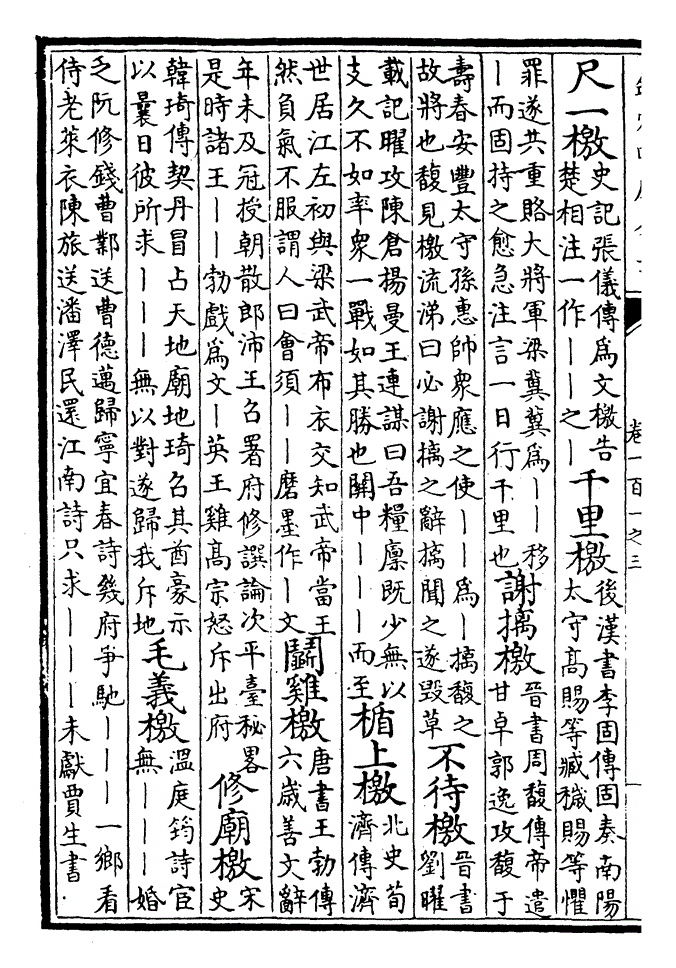 欽定四庫全書
卷一百一之三
尺一檄
史記張儀傳為文檄告
楚相注一作丨丨之丨
千里檄
後漢書李固傳固奏南陽
太守高賜等臟穢賜等懼
罪遂共重賂大將軍梁冀冀為丨丨移
丨而固持之愈急注言一日行千里也
謝摛檄
晉書周馥傳帝遣
甘卓郭逸攻馥于
壽春安豐太守孫惠帥衆應之使丨丨為丨摛馥之
故將也馥見檄流涕曰必謝摛之辭摛聞之遂毀草
不待檄
晉書
劉曜
載記曜攻陳倉揚曼王連謀曰吾糧廩既少無以
支久不如率衆一戰如其勝也關中丨丨丨而至
楯上檄
北史荀
濟傳濟
世居江左初與梁武帝布衣交知武帝當王
然負氣不服謂人曰會須丨丨磨墨作丨文
鬭雞檄
唐書王勃傳
六歲善文辭
年未及冠授朝散郎沛王召署府修譔論次平臺秘畧
是時諸王丨丨勃戲為文丨英王雞高宗怒斥出府
修廟檄
宋
史
韓琦傳契丹冒占天地廟地琦召其酋豪示
以曩日彼所求丨丨丨無以對遂歸我斥地
毛義檄
溫庭筠詩宦
無丨丨丨婚
乏阮修錢曹鄴送曹德邁歸寧宜春詩幾府爭馳丨丨丨一鄉看
侍老萊衣陳旅送潘澤民還江南詩只求丨丨丨未獻賈生書